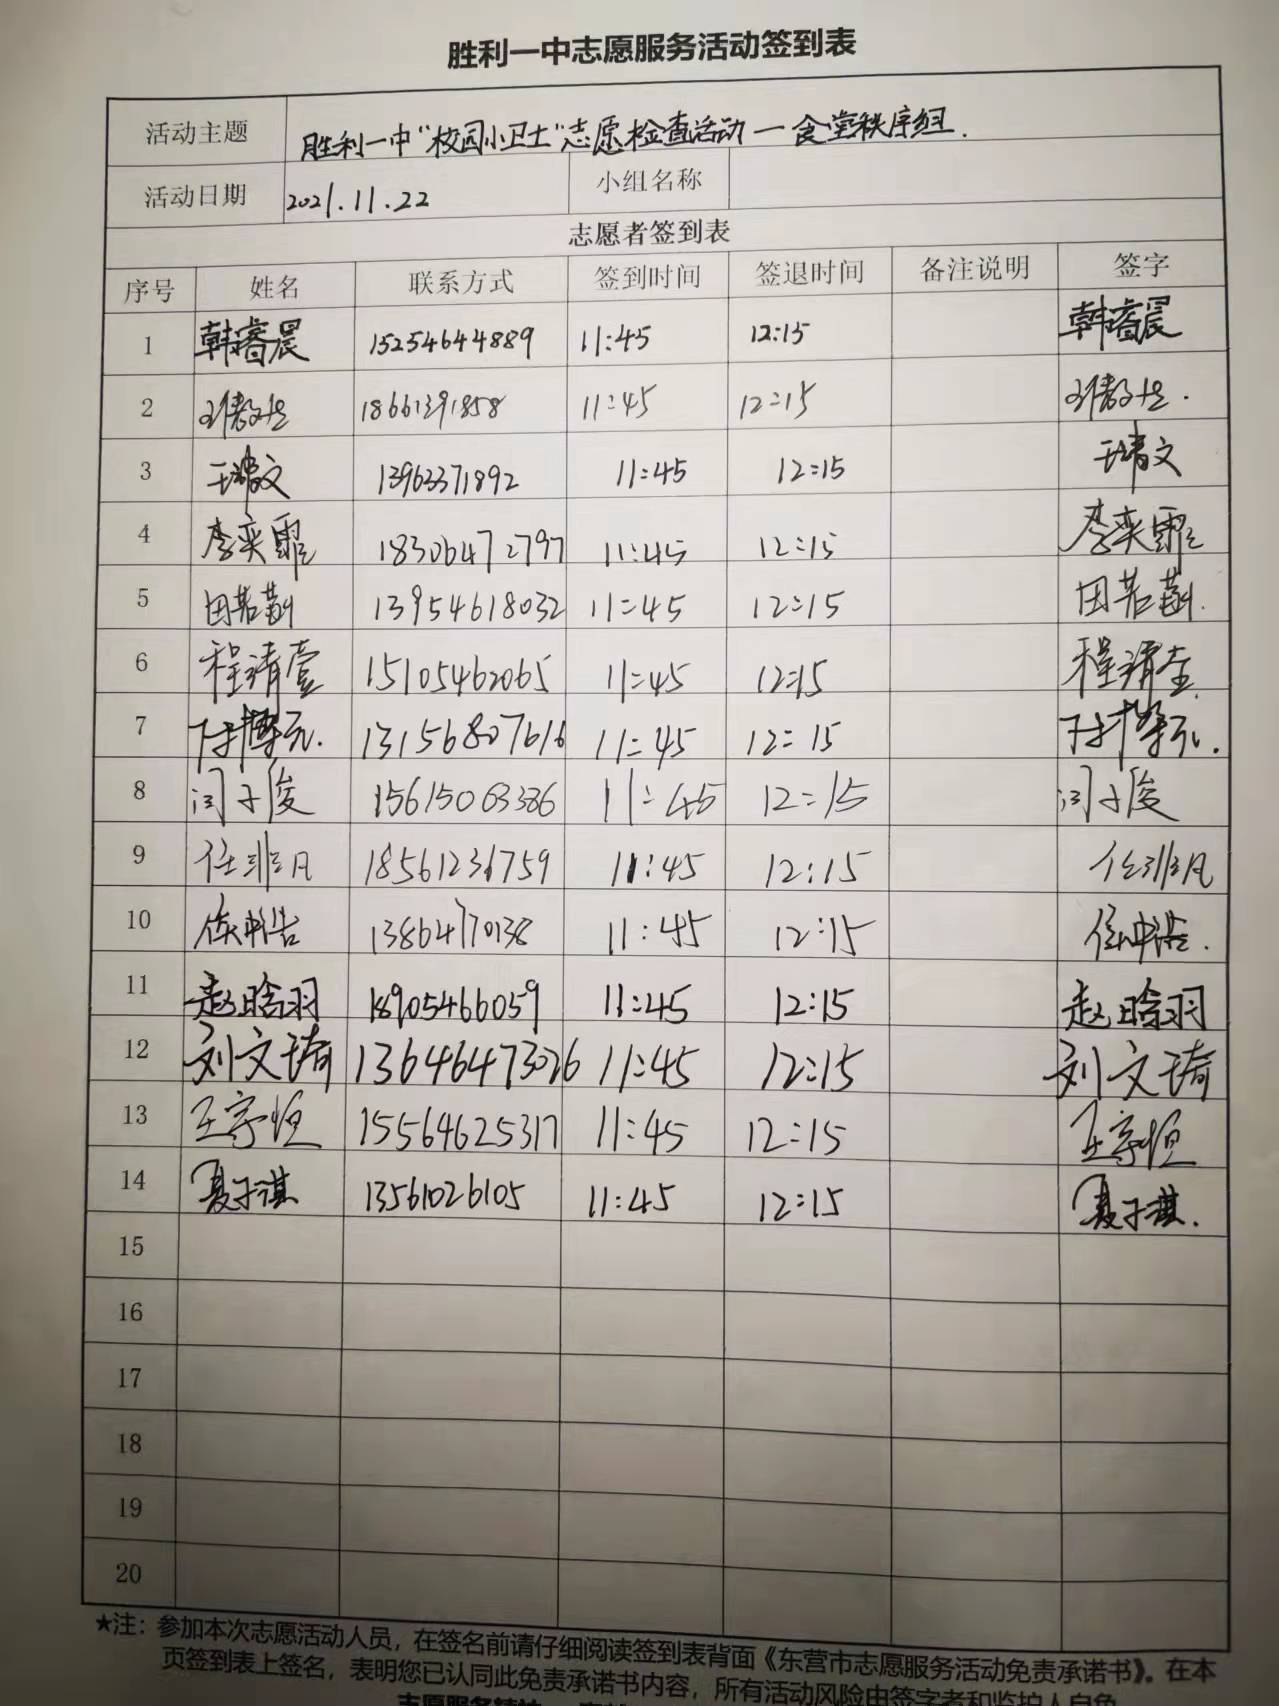 胜利一中志愿服务活动签到表
活动主题 胜利一中“校园小卫士”志愿检查活动—食堂秩序组.
活动日期 2021.11.22 小组名称
志愿者签到表
序号 姓名 联系方式 签到时间 签退时间 备注说明 签字
1 韩睿晨 15254644889 11:45 12:15 韩睿晨
2 18661391858 11:45 12:15
3 13963371892 11:45 12:15
4 李奕霏 18306472797 11:45 12:15 李奕霏
5 田若菡 13954618032 11:45 12:15 田若菡.
6 程靖壹 15105462065 11:45 12:15 程靖壹
7 13156807616 11:45 12:15
8 闫子俊 15615063386 11:45 12:15 闫子俊
9 任非凡 18561231759 11:45 12:15 任非凡
10 13864770138 11:45 12:15
11 赵晗羽 18905466059 11:45 12:15 赵晗羽
12 刘文琦 13646473026 11:45 12:15 刘文琦
13 王宇恒 15564625317 11:45 12:15 王宇恒
14 夏子淇 13561026105 11:45 12:15 夏子淇.
15
16
17
18
19
20
★注：参加本次志愿活动人员，在签名前请仔细阅读签到表背面《东营市志愿服务活动免责承诺书》。在本
页签到表上签名，表明您已认同此免责承诺书内容，所有活动风险由签字者和监护人自负